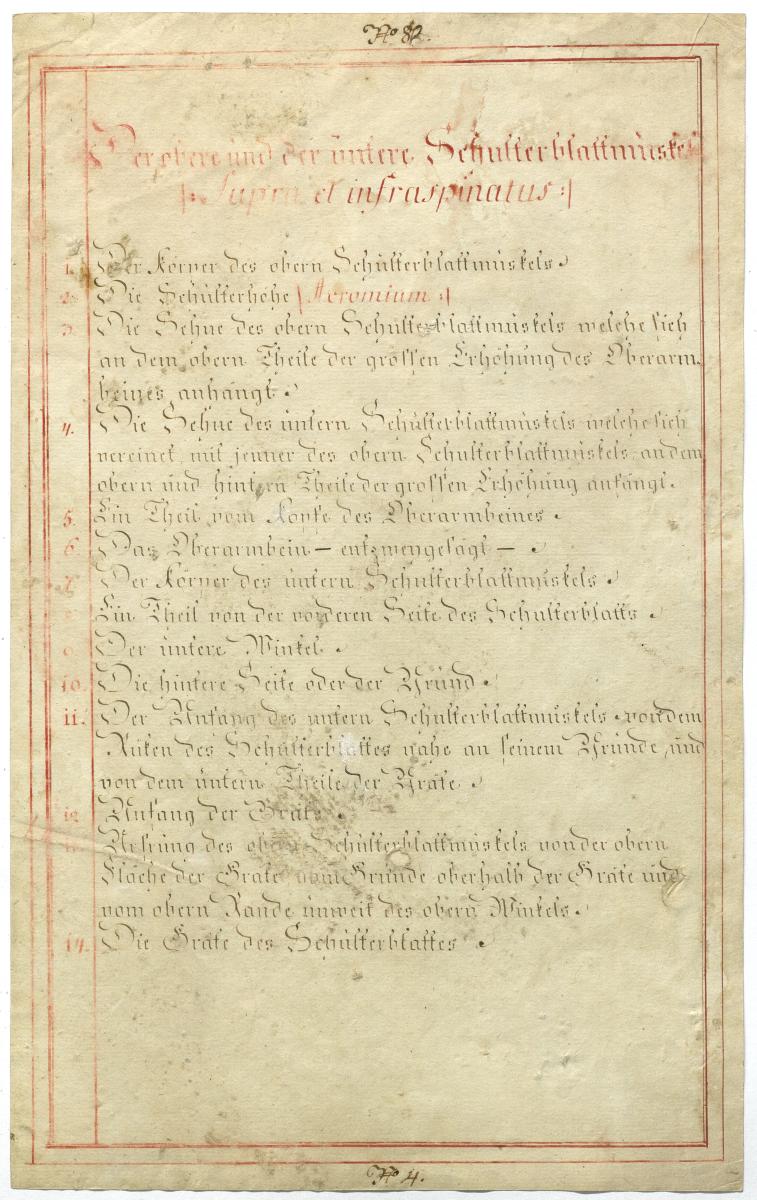 No 82.
Der obere und der untere Schulterblattmuskel
|: Supra et infraspinatus :|
1. Der Körper des obern Schulterblattmuskels.
2. Die Schulterhöhe |: Acromium :|
3. Die Sehne des obern Schulterblattmuskels welche sich
an dem obern Theile der grossen Erhöhung des Oberarm
beines anhängt.
4. Die Sehne des untern Schulterblattmuskels welche sich
vereinet mit jenner des obern Schulterblattmuskels, an dem
obern und hintern Theile der grossen Erhöhung anhängt.
5. Ein Theil vom Kopfe des Oberarmbeines.
6. Das Oberarmbein — entzweygesägt —.
7. Der Körper des untern Schulterblattmuskels.
Ein Theil von der vorderen Seite des Schulterblatts.
9. Der untere Winkel.
10. Die hintere Seite oder der Gründ.
11. Der Anfang des untern Schulterblattmuskels von dem
Rüken des Schulterblattes nahe an seinem Gründe, und
von dem untern Theile der Gräte.
12. Anfang der Gräte.
Ursprung des obern Schulterblattmuskels von der obern
Fläche der Gräte vom Gründe oberhalb der Gräte und
vom obern Rande unweit des obern Winkels.
14. Die Gräte des Schulterblattes.
No 4.